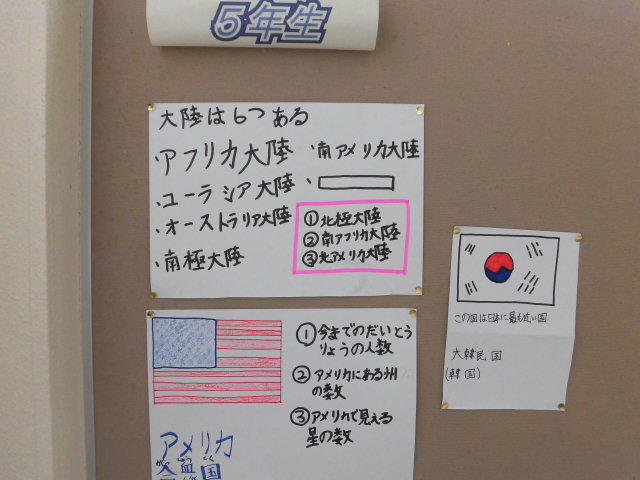 5年生
大陸は6つある
・アフリカ大陸
・南アメリカ大陸
・ユーラシア大陸
・
・オーストラリア大陸
・南極大陸
①北極大陸
②南アフリカ大陸
③北アメリカ大陸
①今までのだいとう
りょうの人数
②アメリカにある州
の数
③アメリカで見える
星の数
アメリカ
この国は日本に最も近い国
大韓民国
(韓国)